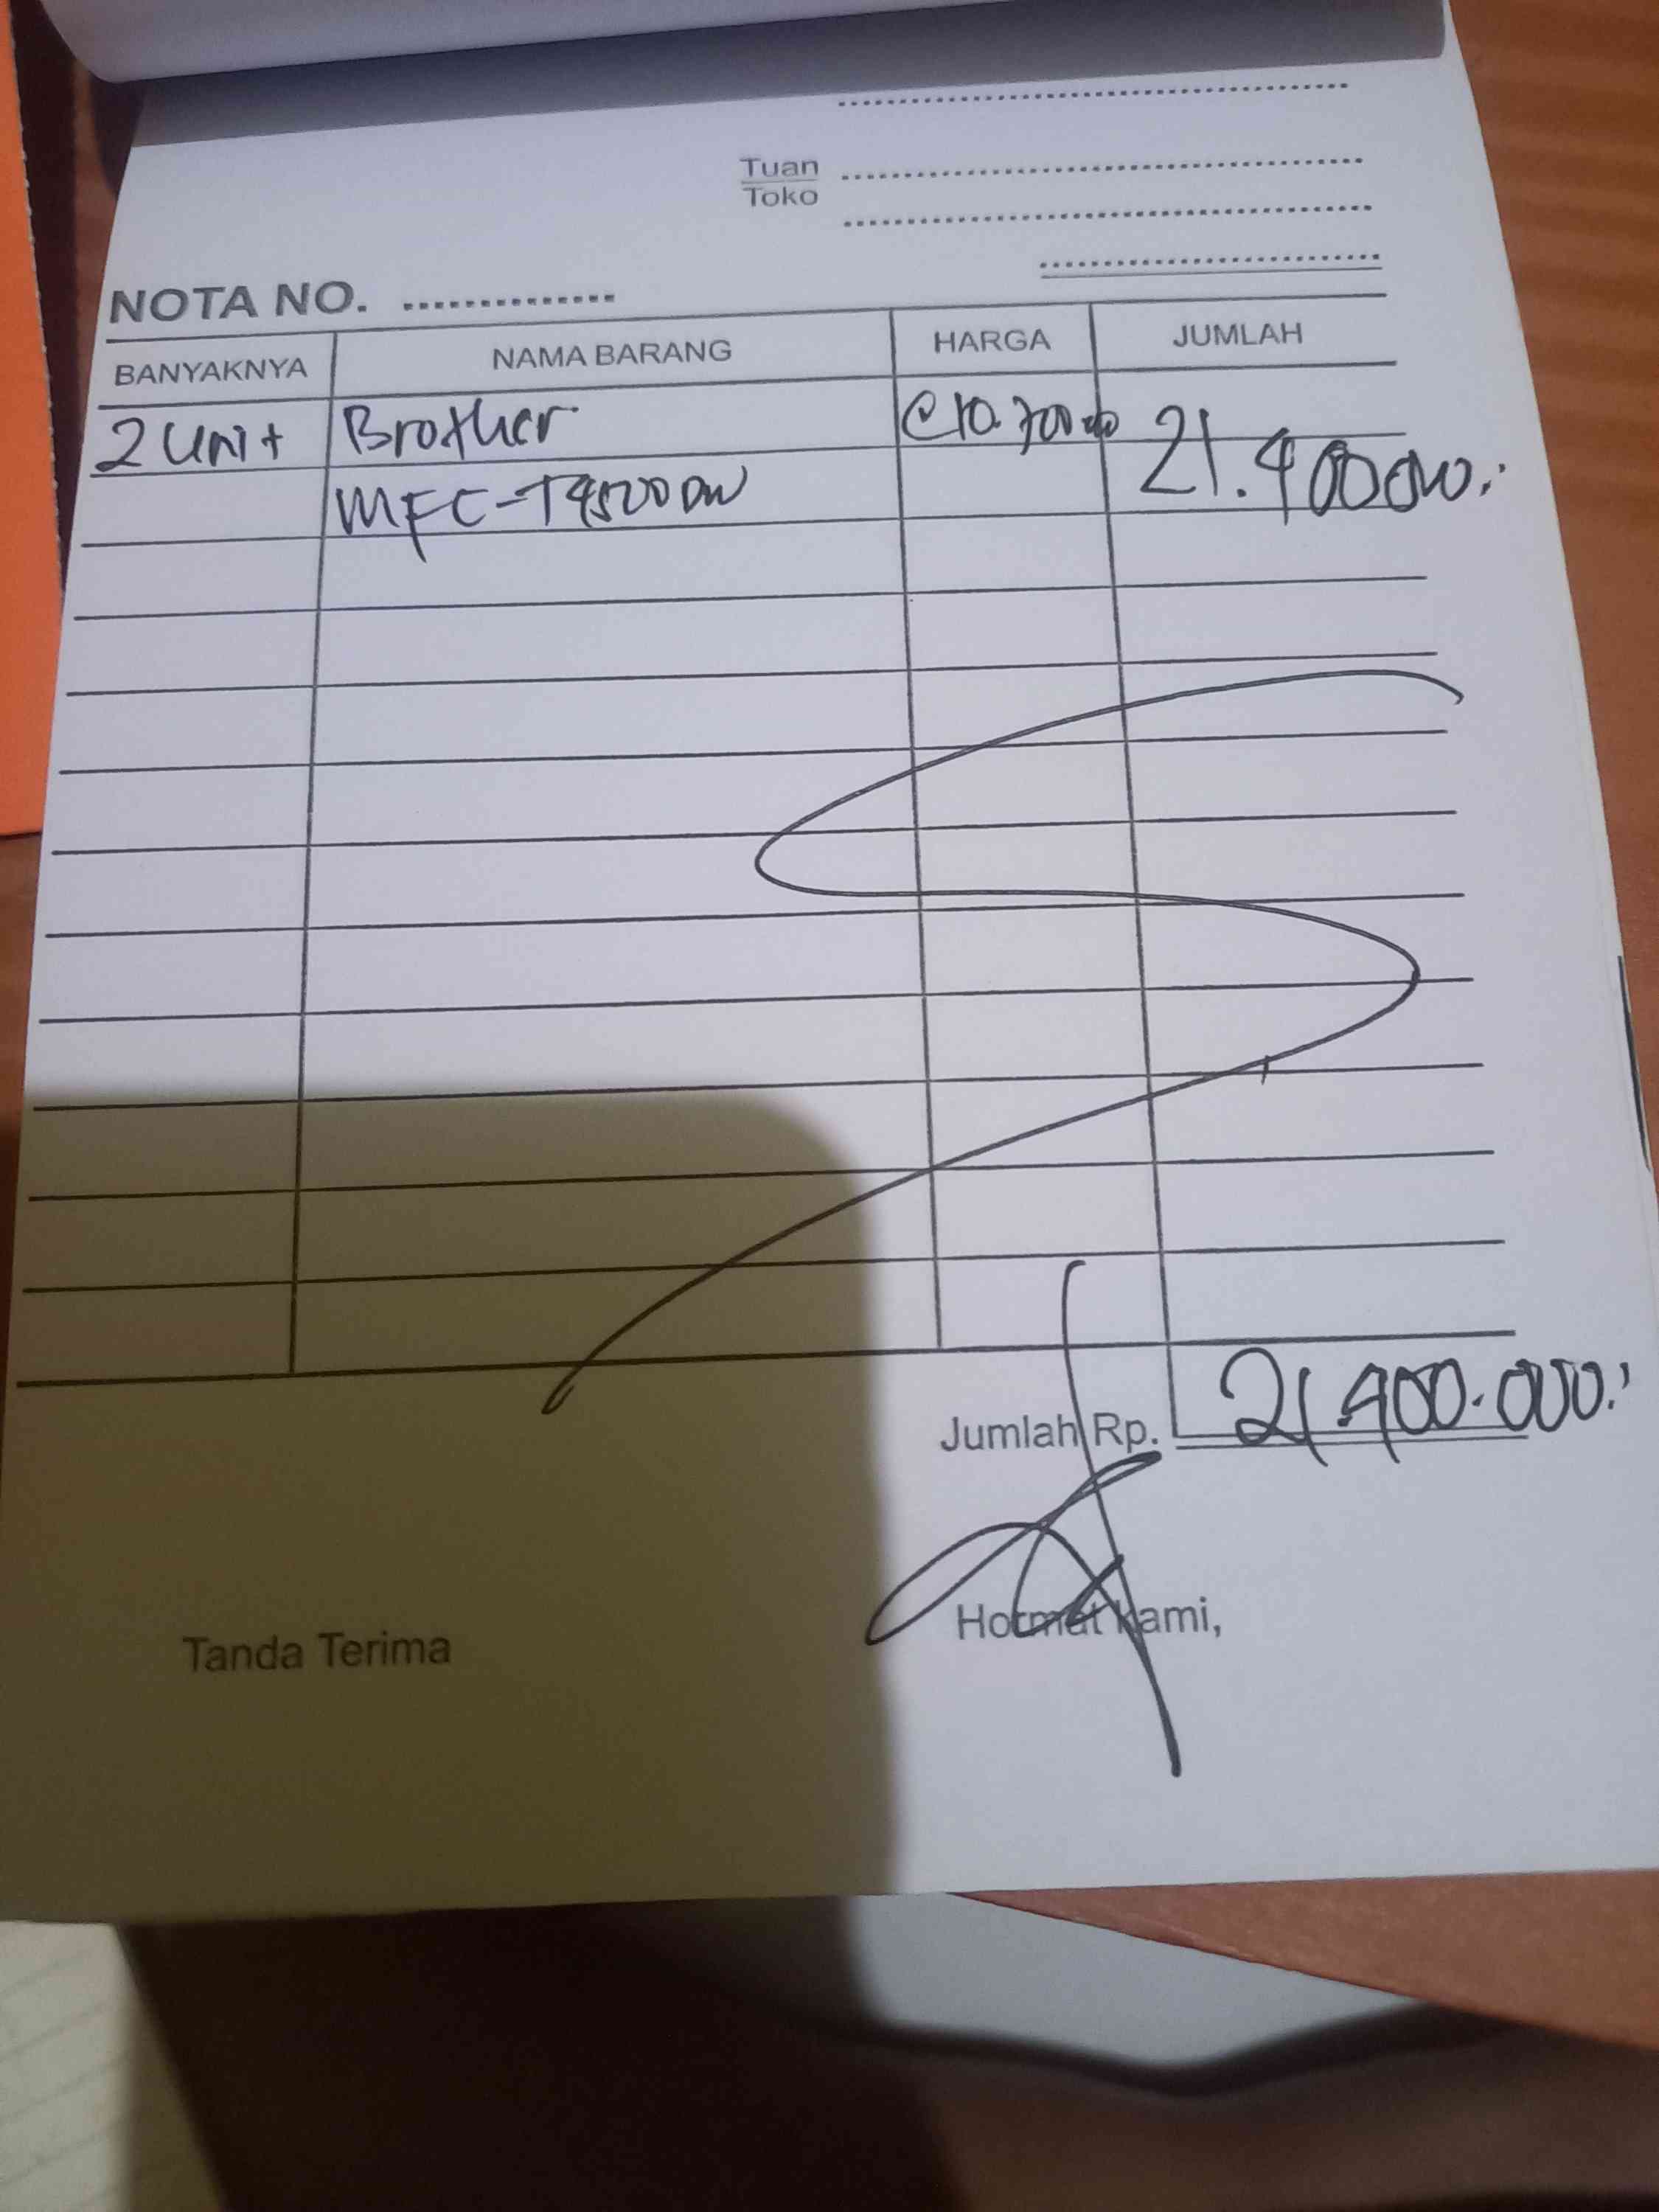 Tuan
Toko
NOTA NO. ..............
BANYAKNYA NAMA BARANG HARGA JUMLAH
2 Unit Brother @10.700.000 21.400.000.-
MFC-T4500DW
Jumlah Rp. 21.400.000.-
Tanda Terima Hormat kami,